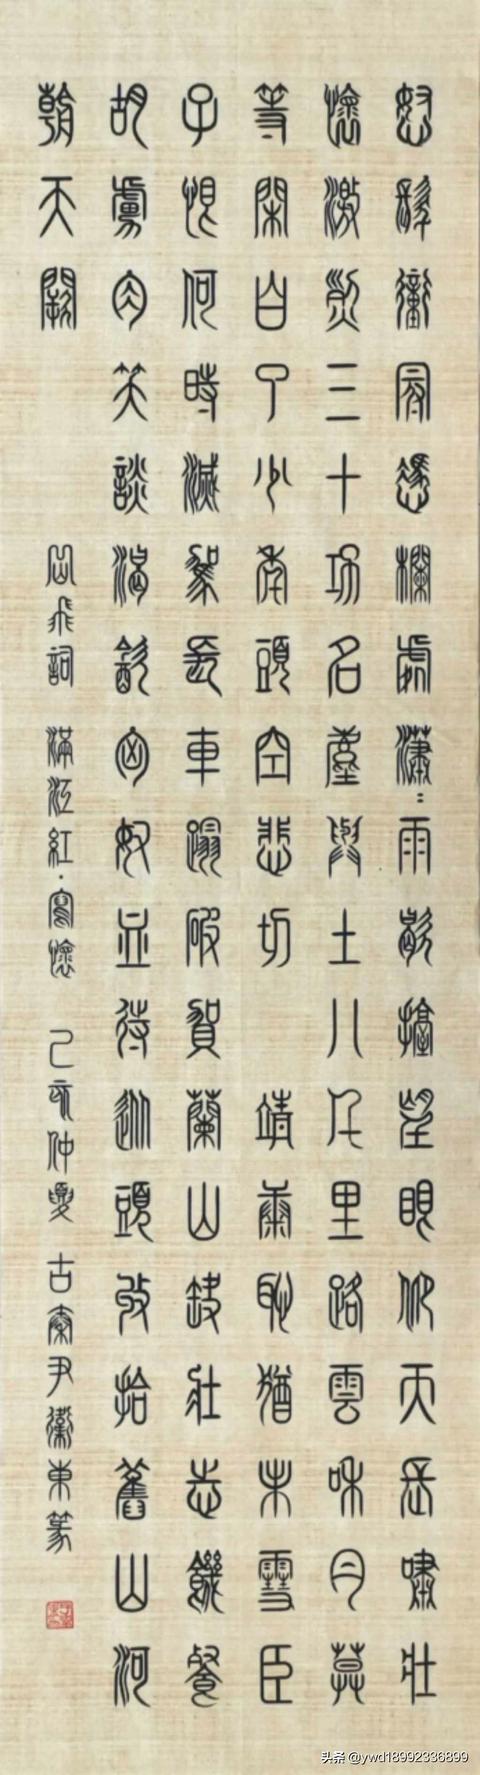 怒髮衝冠憑欄處瀟：雨歇擡望眼仰天長嘯壯
懷激烈三十功名塵與土八千里路雲和月莫
等閑白了少年頭空悲切 靖康恥猶未雪臣
子恨何時滅駕長車蹋破賀蘭山缺壯志饑餐
胡虜肉笑談渴飲匈奴血待從頭收拾舊山河
朝天闕
岳飛詞 滿江紅·寫懷 己亥仲夏 古秦尹衛東篆
头条 @ywd18992336899